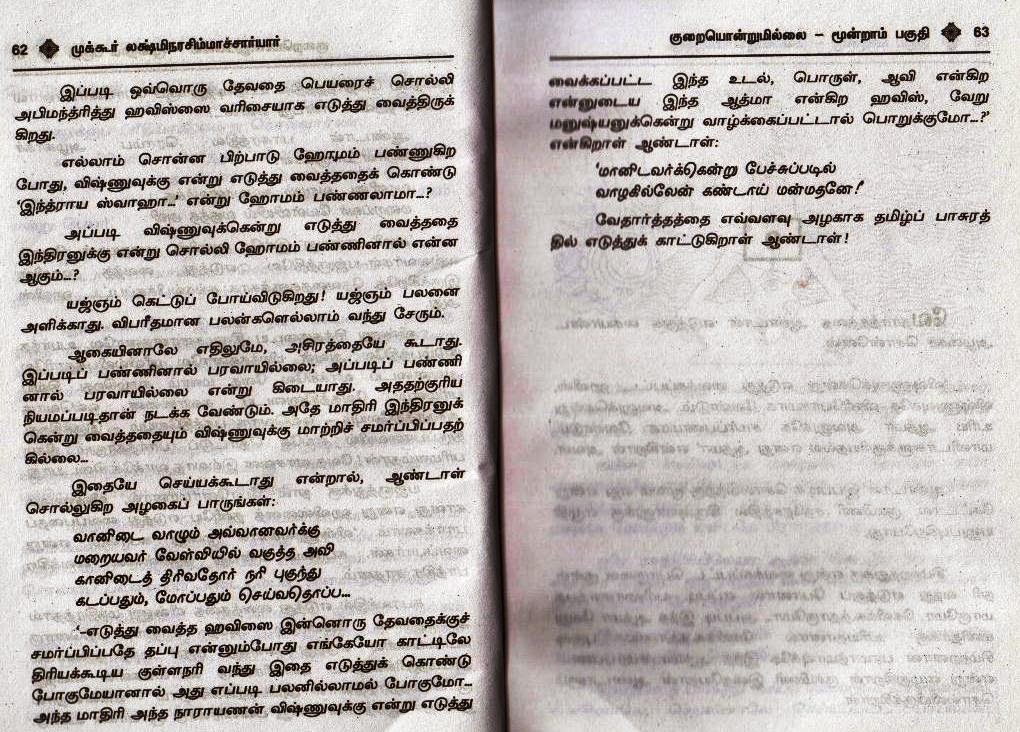 62 முக்கூர் லக்ஷ்மிநரசிம்மாச்சார்யார்
இப்படி ஒவ்வொரு தேவதை பெயரைச் சொல்லி
அபிமந்த்ரித்து ஹவிஸ்ஸை வரிசையாக எடுத்து வைத்திருக்
கிறது.
எல்லாம் சொன்ன பிற்பாடு ஹோமம் பண்ணுகிற
போது, விஷ்ணுவுக்கு என்று எடுத்து வைத்ததைக் கொண்டு
'இந்த்ராய ஸ்வாஹா..' என்று ஹோமம் பண்ணலாமா...?
அப்படி விஷ்ணுவுக்கென்று எடுத்து வைத்ததை
இந்திரனுக்கு என்று சொல்லி ஹோமம் பண்ணினால் என்ன
ஆகும்...?
யஜ்ஞம் கெட்டுப் போய்விடுகிறது! யஜ்ஞம் பலனை
அளிக்காது. விபரீதமான பலன்களெல்லாம் வந்து சேரும்.
ஆகையினாலே எதிலுமே, அசிரத்தையே கூடாது.
இப்படிப் பண்ணினால் பரவாயில்லை; அப்படிப் பண்ணி
னால் பரவாயில்லை என்று கிடையாது. அததற்குரிய
நியமப்படிதான் நடக்க வேண்டும். அதே மாதிரி இந்திரனுக்
கென்று வைத்ததையும் விஷ்ணுவுக்கு மாற்றிச் சமர்ப்பிப்பதற்
கில்லை...
இதையே செய்யக்கூடாது என்றால், ஆண்டாள்
சொல்லுகிற அழகைப் பாருங்கள்:
வானிடை வாழும் அவ்வானவர்க்கு
மறையவர் வேள்வியில் வகுத்த அவி
கானிடைத் திரிவதோர் நரி புகுந்து
கடப்பதும், மோப்பதும் செய்வதொப்ப...
'-எடுத்து வைத்த ஹவிஸை இன்னொரு தேவதைக்குச்
சமர்ப்பிப்பதே தப்பு என்னும்போது எங்கேயோ காட்டிலே
திரியக்கூடிய குள்ளநரி வந்து இதை எடுத்துக் கொண்டு
போகுமேயானால் அது எப்படி பலனில்லாமல் போகுமோ...
அந்த மாதிரி அந்த நாராயணன் விஷ்ணுவுக்கு என்று எடுத்து
குறையொன்றுமில்லை – மூன்றாம் பகுதி 63
வைக்கப்பட்ட இந்த உடல், பொருள், ஆவி என்கிற
என்னுடைய இந்த ஆத்மா என்கிற ஹவிஸ், வேறு
மனுஷ்யனுக்கென்று வாழ்க்கைப்பட்டால் பொறுக்குமோ...?'
என்கிறாள் ஆண்டாள்:
'மானிடவர்க்கென்று பேச்சுப்படில்
வாழகில்லேன் கண்டாய் மன்மதனே!'
வேதார்த்தத்தை எவ்வளவு அழகாக தமிழ்ப் பாசுரத்
தில் எடுத்துக் காட்டுகிறாள் ஆண்டாள்!